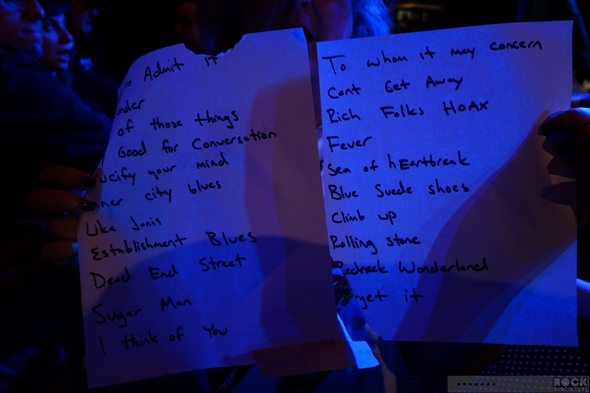 to Admit it
nder
of those things
Good for Conversation
ucify your mind
nner city blues
Like Janis
Establishment Blues
Dead End Street
Sugar Man
I think of You
To whom it may concern
Cant Get Away
Rich Folks HOAX
Fever
Sea of hEartbreak
Blue Suede shoes
Climb up
Rolling stone
Redneck Wonderland
get it
ROCK
SUBCULTURE